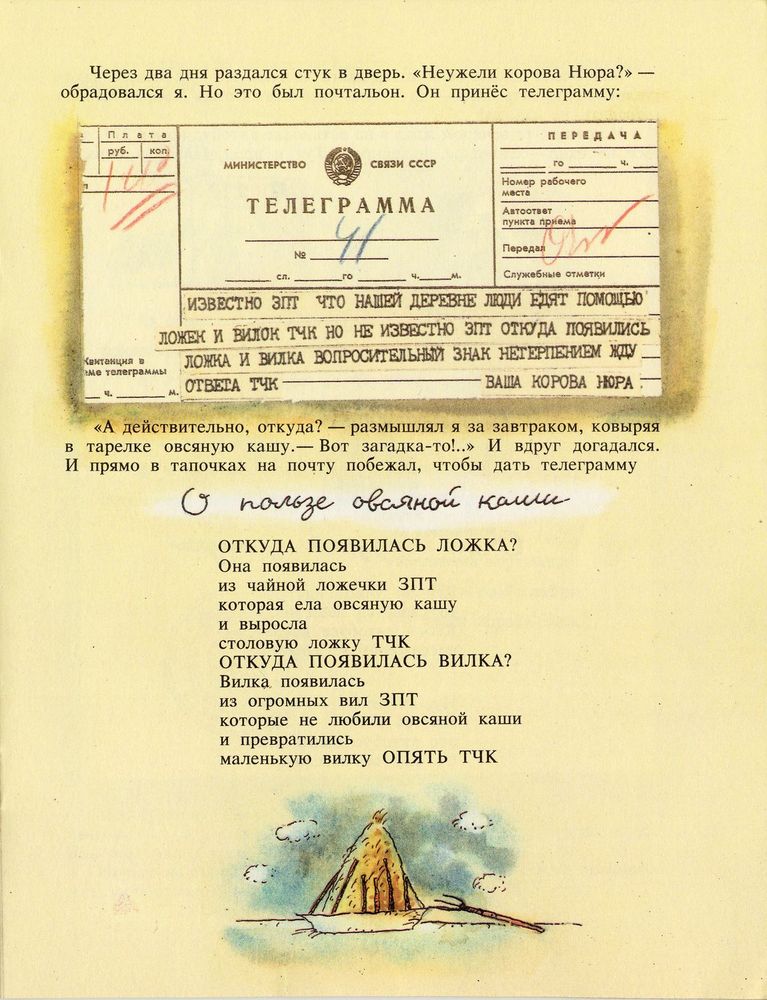 Через два дня раздался стук в дверь. «Неужели корова Нюра?» —
обрадовался я. Но это был почтальон. Он принёс телеграмму:
Плата
руб. коп.
МИНИСТЕРСТВО СВЯЗИ СССР
ТЕЛЕГРАММА
№ 41
сл. го ч. м.
ПЕРЕДАЧА
го ч.
Номер рабочего
места
Автоответ
пункта приема
Передал
Служебные отметки
ИЗВЕСТНО ЗПТ ЧТО НАШЕЙ ДЕРЕВНЕ ЛЮДИ ЕДЯТ ПОМОЩЬЮ
ЛОЖЕК И ВИЛОК ТЧК НО НЕ ИЗВЕСТНО ЗПТ ОТКУДА ПОЯВИЛИСЬ
ЛОЖКА И ВИЛКА ВОПРОСИТЕЛЬНЫЙ ЗНАК НЕТЕРПЕНИЕМ ЖДУ
ОТВЕТА ТЧК — ВАША КОРОВА НЮРА .
Квитанция в
ме телеграммы
ч. м.
«А действительно, откуда? — размышлял я за завтраком, ковыряя
в тарелке овсяную кашу.— Вот загадка-то!..» И вдруг догадался.
И прямо в тапочках на почту побежал, чтобы дать телеграмму
О пользе овсяной каши
ОТКУДА ПОЯВИЛАСЬ ЛОЖКА?
Она появилась
из чайной ложечки ЗПТ
которая ела овсяную кашу
и выросла
столовую ложку ТЧК
ОТКУДА ПОЯВИЛАСЬ ВИЛКА?
Вилка появилась
из огромных вил ЗПТ
которые не любили овсяной каши
и превратились
маленькую вилку ОПЯТЬ ТЧК